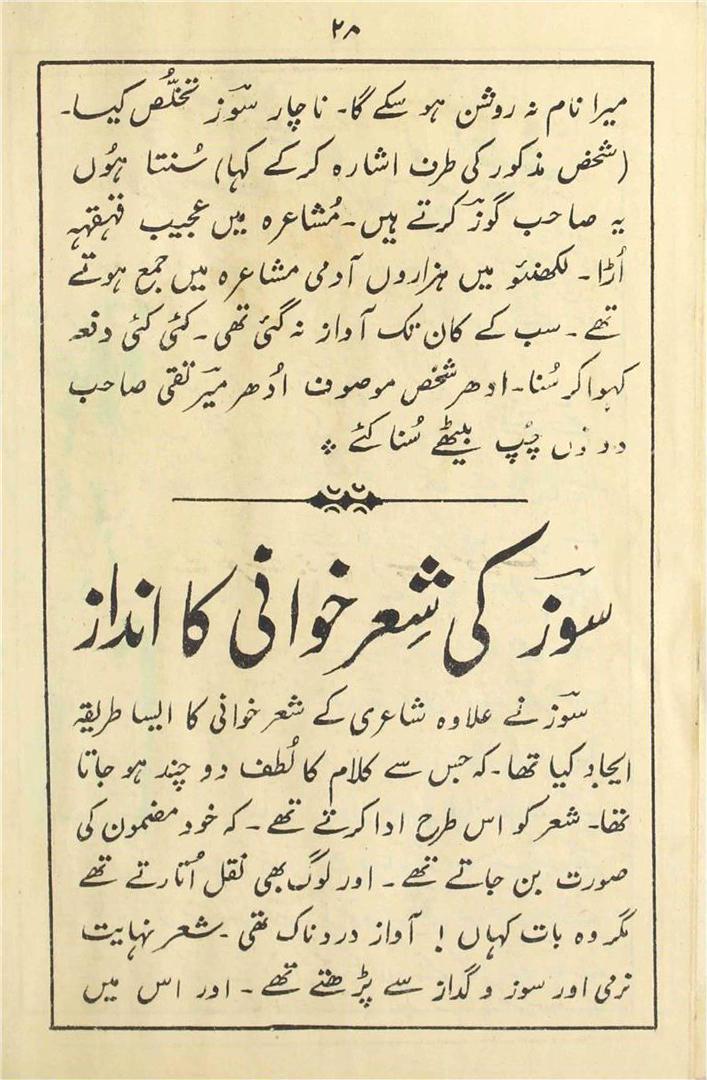 ۲۸
میرا نام نہ روشن ہو سکے گا۔ ناچار سوؔز تخلّص کیا۔
(شخص مذکور کی طرف اشارہ کرکے کہا) سُنتا ہُوں
یہ صاحب گوؔز کرتے ہیں۔ مُشاعرہ میں عجیب قہقہہ
اُڑا۔ لکھنئو میں ہزاروں آدمی مشاعرہ میں جمع ہوتے
تھے۔ سب کے کان تک آواز نہ گئی تھی۔ کئی کئی دفعہ
کہوا کر سُنا۔ ادھر شخص موصوف اُدھر میؔر تقی صاحب
دونوں چُپ بیٹھے سُنا کئے ❖
سوؔز کی شِعر خوانی کا انداز
سوؔز نے علاوہ شاعری کے شعر خوانی کا ایسا طریقہ
ایجاد کیا تھا۔ کہ جس سے کلام کا لُطف دو چند ہو جاتا
تھا۔ شعر کو اس طرح ادا کرتے تھے۔ کہ خود مضمون کی
صورت بن جاتے تھے۔ اور لوگ بھی نقل اُتارتے تھے
مگر وہ بات کہاں! آواز دردناک تھی۔ شعر نہایت
نرمی اور سوز و گداز سے پڑھتے تھے۔ اور اس میں